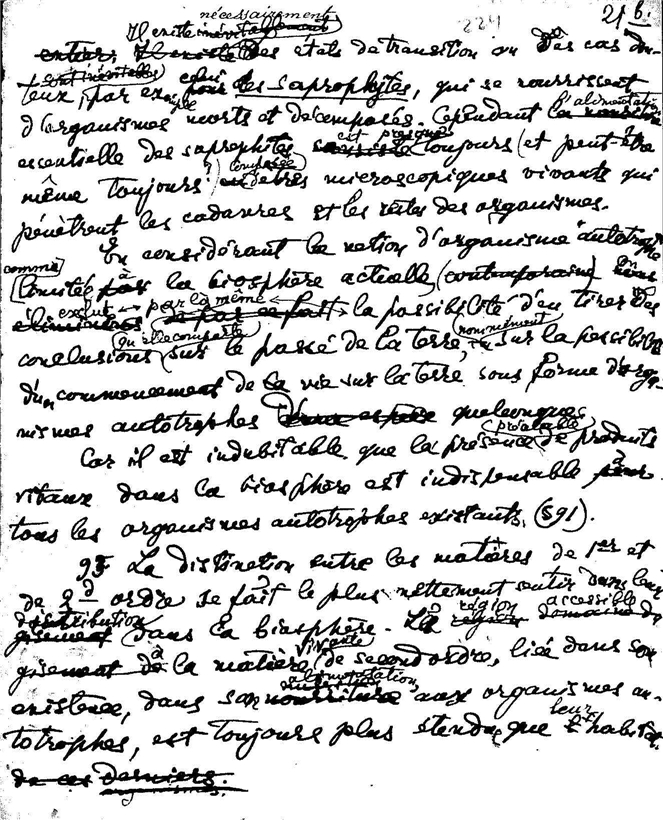 nécessairement
224
21 b.
Il existe inévitablement
entier, Il existe des états de transition ou des cas dou-
sont inévitables celui
teux, par exemple pour les saprophytes, qui se nourrissent
l'alimentation
d'organismes morts et décomposés. Cependant la
est presque
essentielle des saprophites consiste toujours (et peut-être
composée
même toujours?) d'êtres microscopiques vivants qui
pénètrent les cadavres et les restes des organismes.
En considérant la notion d'organisme "autotrophe
comme à on
limitée par la biosphère actuelle (contemporaine) nous
exclut par là même
éliminons de par ce fait la possibilité d'en tirer des
qu'elle comporte nommément
conclusions sur le passé de la terre, sur la possibilité
d'un commencement de la vie sur la terre sous forme d'orga-
nismes autotrophes d'une espèce quelconques
préalable
Car il est indubitable que la présence de produits
à
vitaux dans la biosphère est indispensable pour
tous les organismes autotrophes existants. (§91).
93 La distinction entre les matières de 1er et
de 2d ordre se fait le plus nettement sentir dans leur
distribution région accessible
gisement dans la biosphère. La région domaine du
à vivante
gisement de la matière de second ordre, liée dans son
alimentation
existence, dans son nourriture aux organismes au-
leur
totrophes, est toujours plus étendue que l'habitat
de ces derniers.
organismes.